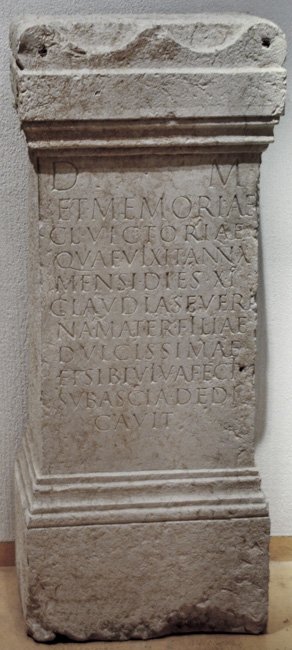 D M
ET MEMORIAE
CL VICTORIAE
QVAE VIXIT ANN X
MENS I DIES XI
CLAVDIA SEVERI
NA MATER FILIAE
DVLCISSIMAE
ET SIBI VIVA FECIT
SVB ASCIA DEDI
CAVIT